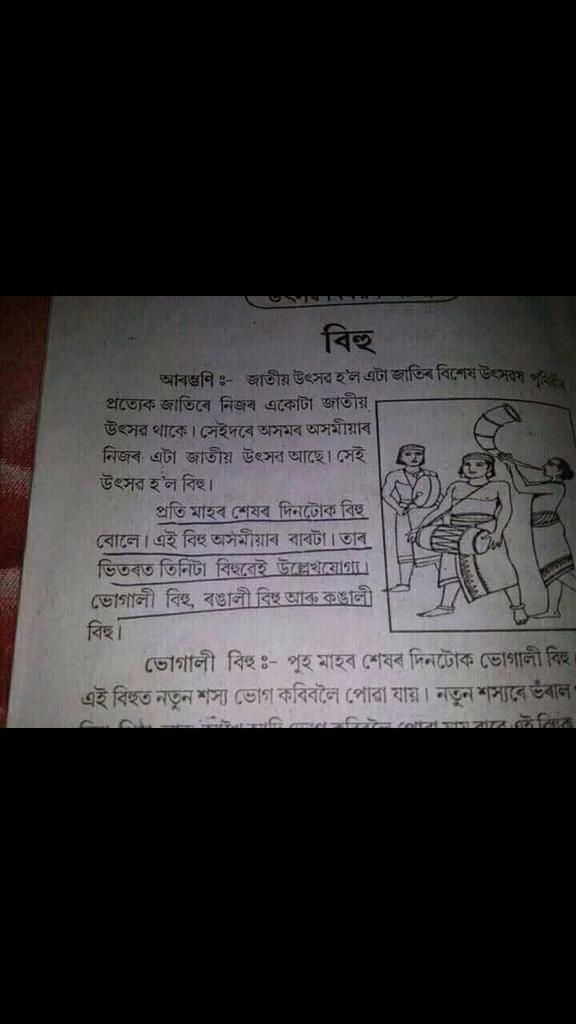 বিহু
আৰম্ভণি ঃ- জাতীয় উৎসৱ হ'ল এটা জাতিৰ বিশেষ উৎসৱয
প্ৰত্যেক জাতিৰে নিজৰ একোটা জাতীয়
উৎসৱ থাকে। সেইদৰে অসমৰ অসমীয়াৰ
নিজৰ এটা জাতীয় উৎসৱ আছে। সেই
উৎসৱ হ'ল বিহু।
প্ৰতি মাহৰ শেষৰ দিনটোক বিহু
বোলে। এই বিহু অসমীয়াৰ বাৰটা। তাৰ
ভিতৰত তিনিটা বিহুৱেই উল্লেখযোগ্য।
ভোগালী বিহু, ৰঙালী বিহু আৰু কঙালী
বিহু।
ভোগালী বিহু ঃ- পুহ মাহৰ শেষৰ দিনটোক ভোগালী বিহু
এই বিহুত নতুন শস্য ভোগ কৰিবলৈ পোৱা যায়। নতুন শস্যৰে ভঁৰাল